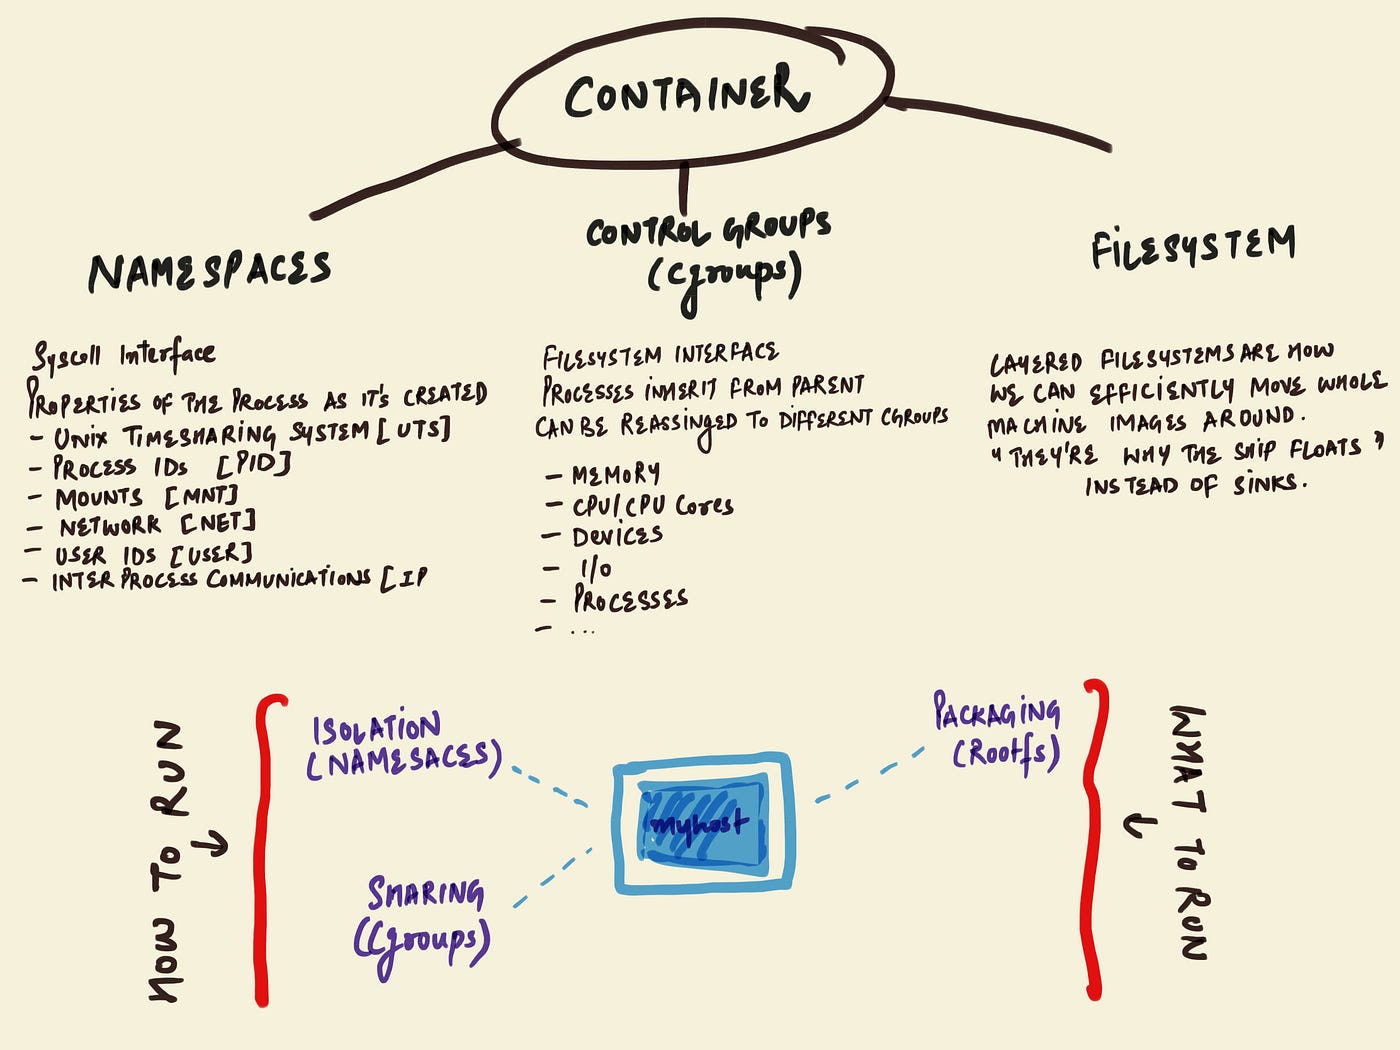 CONTAINER
NAMESPACES
Syscall Interface
PROPERTIES OF THE PROCESS AS IT'S CREATED
- UNIX TIMESHARING SYSTEM [UTS]
- PROCESS IDs [PID]
- MOUNTS [MNT]
- NETWORK [NET]
- USER IDs [USER]
- INTER PROCESS COMMUNICATIONS [IP
CONTROL GROUPS
(Cgroups)
FILESYSTEM INTERFACE
PROCESSES INHERIT FROM PARENT
CAN BE REASSINGED TO DIFFERENT CGROUPS
- MEMORY
- CPU/CPU Cores
- DEVICES
- I/O
- PROCESSES
- ...
FILESYSTEM
LAYERED FILESYSTEMS ARE HOW
WE CAN EFFICIENTLY MOVE WHOLE
MACHINE IMAGES AROUND.
"THEY'RE WHY THE SHIP FLOATS"
INSTEAD OF SINKS.
HOW TO RUN
ISOLATION
(NAMESACES)
SHARING
(Cgroups)
myhost
PACKAGING
(Rootfs)
WHAT TO RUN